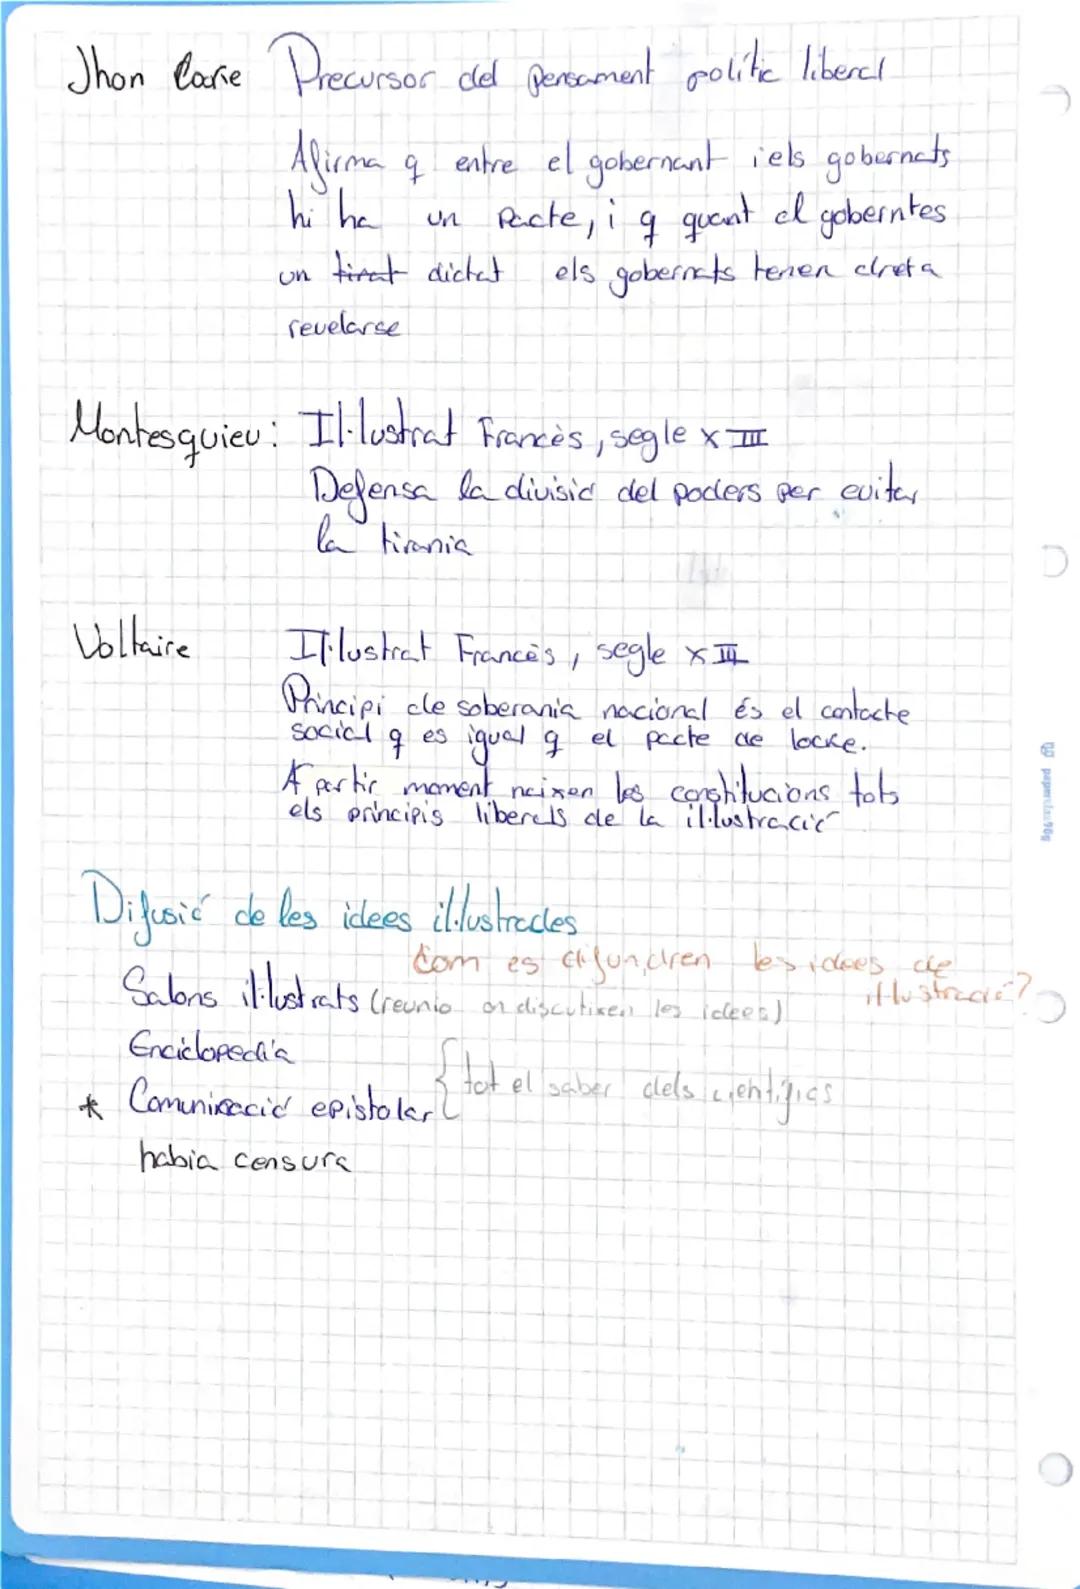 Jhon Locke Precursor del pensament polític liberal
Afirma q entre el gobernant i els gobernats
hi ha un Pacte, i q quant el goberntes
un tirat dictat els gobernats tenen dret a
revelarse
Montesquieu: Il·lustrat Francès, segle XIII
Defensa la divisió del poders per evitar
la tirania
Voltaire Il·lustrat Francès, segle XIII
Principi de soberania nacional és el contacte
social q es igual q el pacte de locke.
A partir moment neixen les constitucions tots
els principis liberals de la il·lustració
Difusió de les idees il·lustrades
Com es difundren les idees de
il·lustració?
Salons il·lustrats (reunio on discutixen les idees)
Enciclopedia
{ tot el saber dels cientifics
* Comunicació epistolar
habia censura
paperclass90g